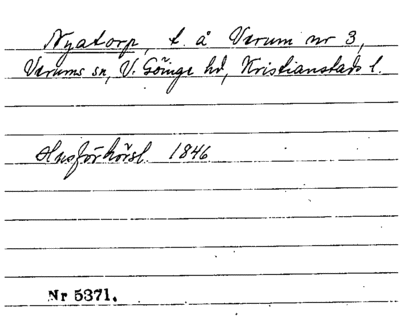 Nyatorp, t. å Verum nr 3,
Verums sn, V. Göinge hd, Kristianstads l.
Husförhörsl. 1846
Nr 5371.